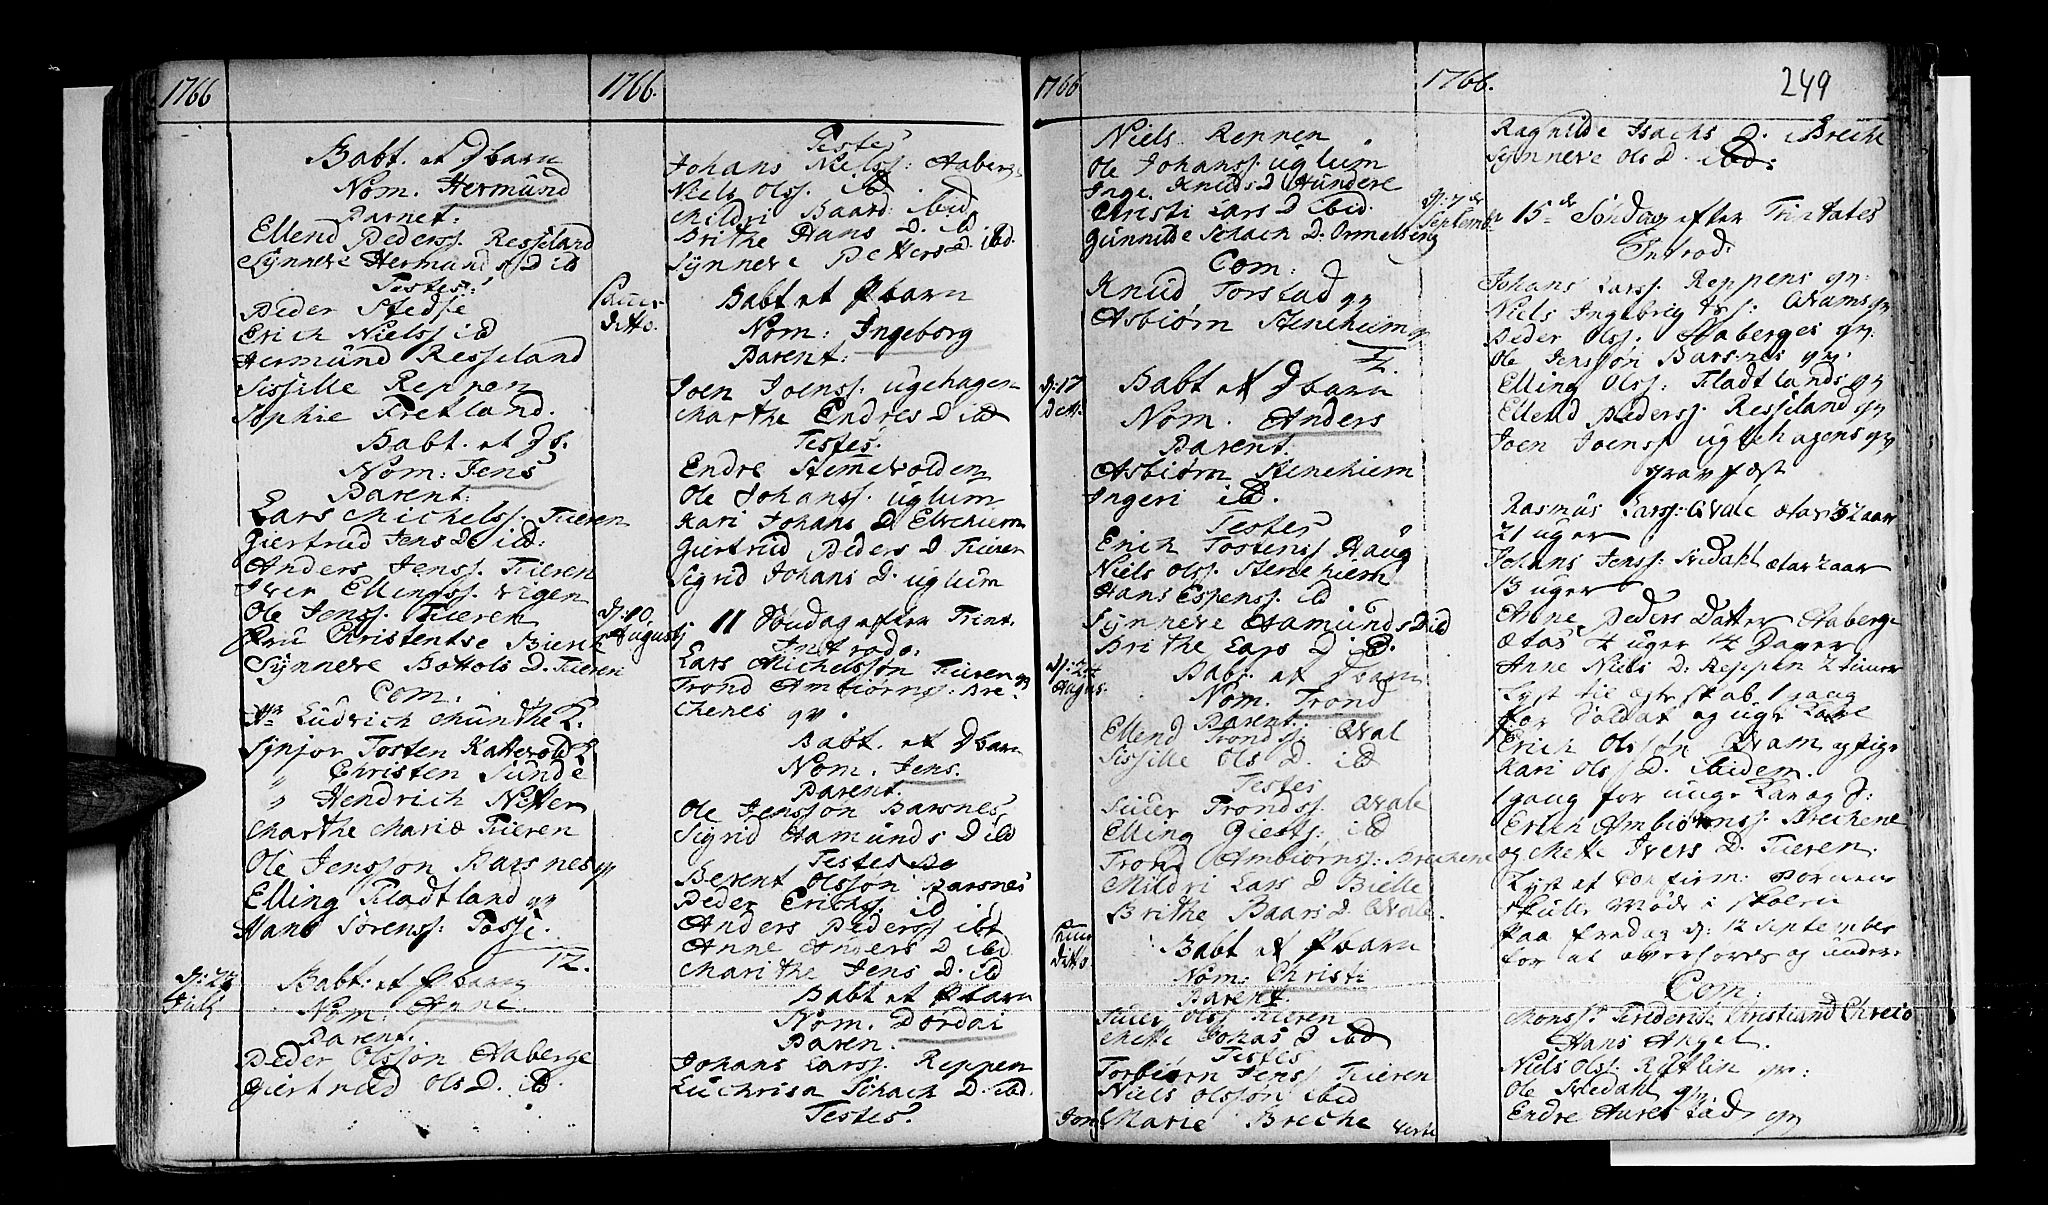 1766
Babt. et Dbarn
Nom. Hermund
Parent:
Ellend Pederss. Resseland
Synneve Hermunds D ibd
Testes:
Peder Stedje
Erich Nielss ibd
Hermund Resseland
Sissille Reppen
Sophie Fretland.
Babt. et Ds.
Nom: Jens
Parent:
Lars Michelss. Tieren
Giertrud Jens D ibd:
Anders Jenss. Tieren
Iver Ellingss. Vigen
Ole Jenss. Tieren
Fru Christentse Bierch
Synneve Bottols D. Tieren
Com.
Hr. Ludvich Munthe
Synjor Tosten Kattevold
" Christen Sunde
" Hendrich Nitter
Marthe Marie Tieren
Ole Jensson Barsnes qv
Elling Fladtland qv
Hans Sörenss: Fosse.
12.
d: 27 Julij
Babt: et Pbarn
Nom: Anne
Parent.
Peder Olsson Aaberge
Giertrud Ols D. ibd.
1766.
Testes
Johans Nielss: Aaberge
Niels Olss. ibd
Mildri Baard: ibid
Brithe Hans D. ibd.
Synneve Petters D. ibd.
ditto.
Babt et Pbarn
Nom: Ingeborg
Parent:
Joen Joenss. ugehagen
Marthe Endres D ibd
Testes.
Endre Stenevolden
Ole Johanss. uglum
Kari Johans D. Elvehiem
Giertrud Peders D Tieren
Sigrid Johans D. uglum
d: 10. Augustj
11 Söndag efter Trint.
Introd.
Lars Michelssön Tieren qv
Trond Ambiörnss: Bre-
chenes qv.
Babt. et Dbarn
Nom. Jens.
Parent.
Ole Jenssön Barsnes
Sigrid Hamunds D ibd
Testes
Berent Olsson Barsnes
Peder Erichss. ibd
Anders Pederss ibd
Anne Anders D ibd
Marithe Jens D. ibd
Babt et Pbarn
Nom. Dordei
Paren.
Johans Larss. Reppen
Luchrisa Schach D. ibd.
Testes.
1766
Niels Reppen
Ole Johanss. uglum
Inge. Knuds D Hundere
Christi Lars D ibid.
Gunnilde Schach D. Ormelseng
Com:
Knud Torstad qv
Asbiörn Steneheim qv
d: 17 ditt.
Babt et Dbarn
Nom. Anders
Parent.
Asbiörn Stenehiem
Ingeri ibd.
Testes
Erich Tostenss Haug
Niels Olss. Stenehiem
Hans Espenss. ibd
Synneve Hamunds D ibd
Brithe Lars D ibd.
d: 24 Augus:
Babt. et Dbarn
Nom. Trond
Parent.
Ellend Trondss: Qval
Sissille Ols D. ibd
Testes
Siuer Trondss. Qvale
Elling Giests: ibd
Trond Ambiörnss: Brechene
Mildri Lars D Bielle
Brithe Baars D. Qvale.
ditto
Babt et Pbarn
Nom: Christi
Parent.
Siuer Olss Tieren
Mette Johas D ibd
Testes
Torbiörn Jenss Tieren
Niels Olssön ibid
Marie Breche
verte
1766.
249
Ragnilde Isachs D. Breche
Synneve Ols D. ibd:
d: 7de Septembr
15de Söndag efter Trintates
Introd:
Johans Larss. Reppens qv:
Niels Ingebrigtss: Qvams qv
Peder Olss. Aaberges qv:
Ole Jenssön Barsnes qv.
Elling Olss: Fladtlands qv
Ellend Pederss. Resseland qv
Joen Joenss ugehagens qv
gravfæst
Rasmus Larss: Qvale ætas 32 aar
21 uger
Johans Jenss: Nidahl ætas 2 aar
13 uger
Anne Peders Datter Aaberge
ætas 4 uger 4 Dager
Anne Niels D: Reppen 2 timer
Lyst til egteskab 1 gang
for Soldat og uge Karle
Erich Olssön Qvam og pige
Kari Ols D. ibidem.
1 gang for unge Kar og P:
Erich Ambiörnss: Brechene
og Mette Ivers D. Tieren.
Lyst at Confirm: Börnene
skulle Möde i skolen
paa fredag d: 12 Septembr
for at overhöres og under-
Com:
Monsr. Frederich Christiand Chreid
Hans Angel.
Niels Olss: Røtlin qv:
Ole Nedahl qv
Endre Aurestad qv